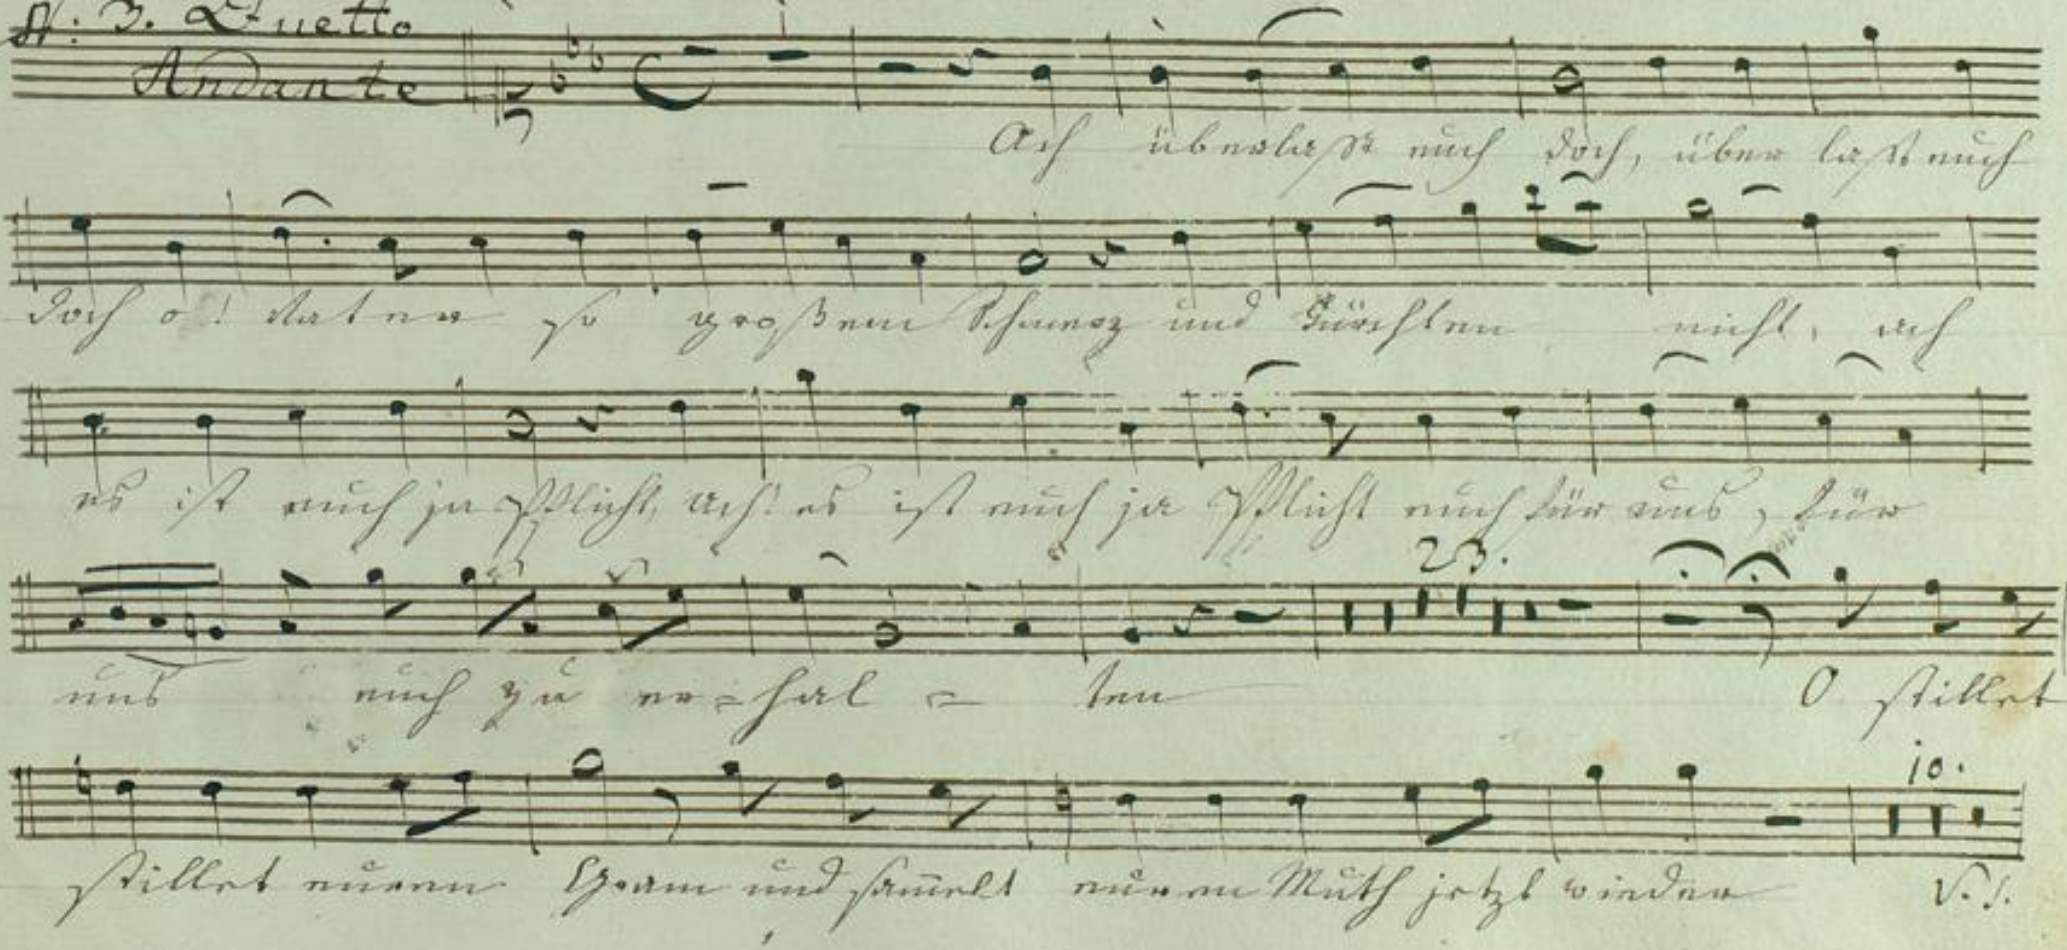 N: 3. Duetto
Andante
Ach überlasst euch doch, über lasst euch
doch o! Vater so großem Schmerz und Fürchten nicht, ach
es ist euch ja Pflicht, ach! es ist euch ja Pflicht euch für uns, für
23.
uns euch zu er=hal = ten O stillet
10.
stillet euren Gram und sam̄elt euren Muth jetzt wieder V. S.